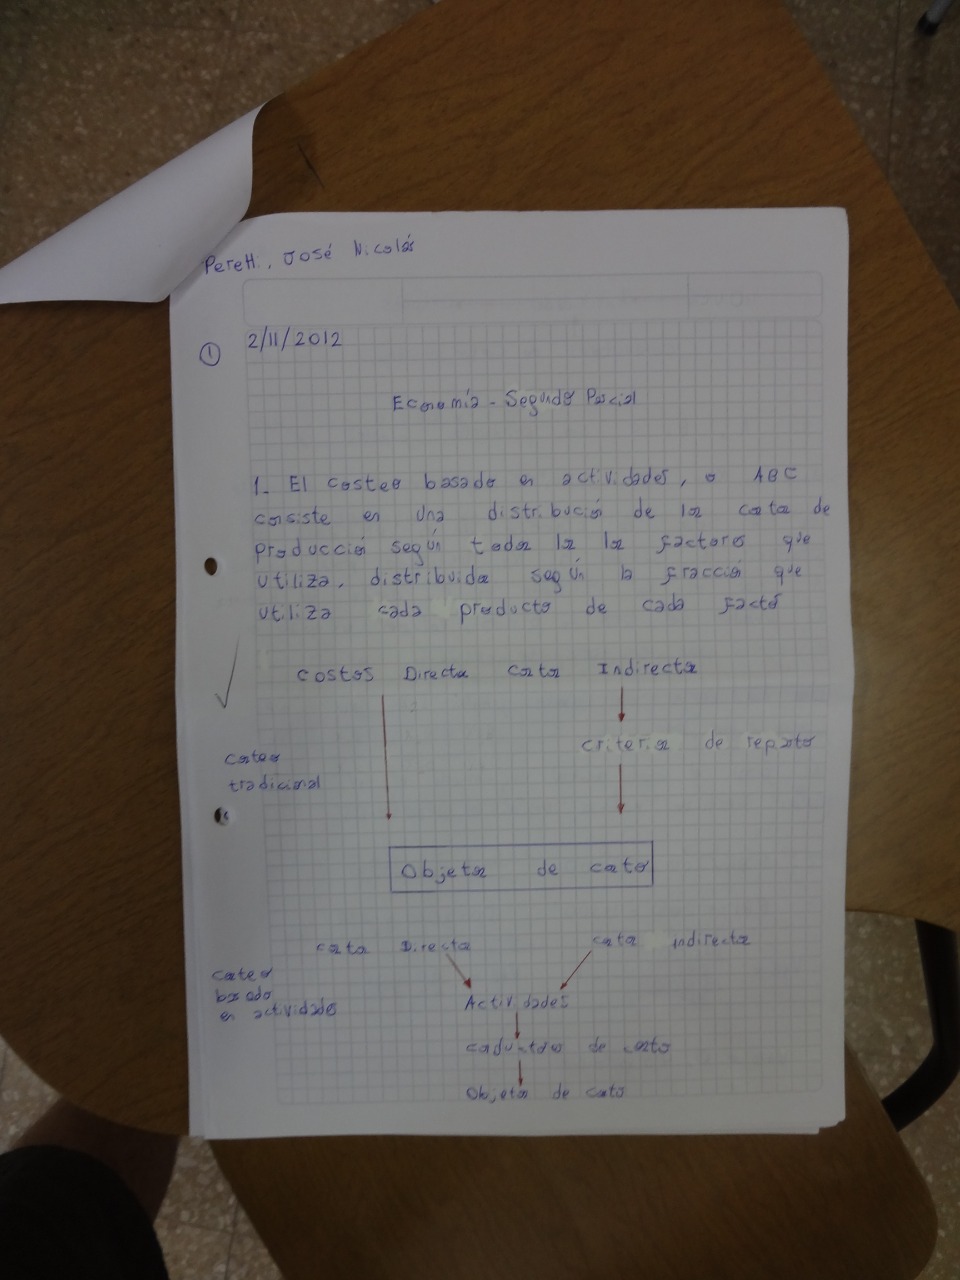 José Nicolás
1
2/11/2012
Economía - Segundo Parcial
1- El costeo basado en actividades, o ABC
consiste en una distribución de los costos de
producción según todos los los factores que
utiliza, distribuidos según la fracción que
utiliza cada producto de cada factó
Costos Directos Costos Indirectos
criterios de reparto
Costeo
tradicional
Objetos de costo
Costos Directos Costos indirectos
Costeo
basado
en actividades
Actividades
de costo
Objetos de costo